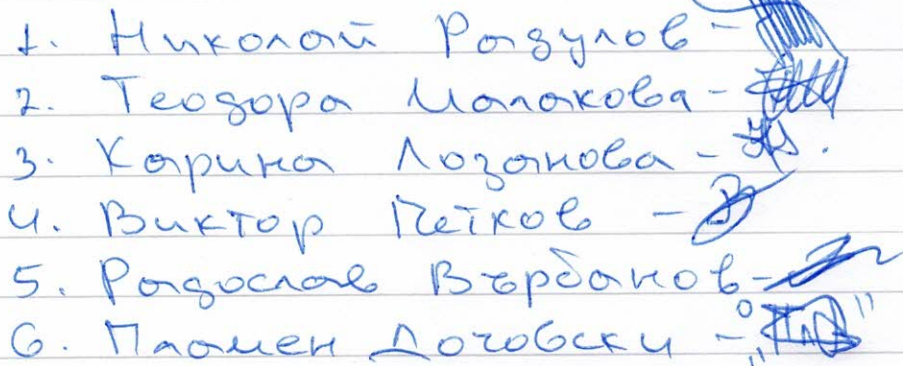 1. Николай Радулов -
2. Теодора Малакова -
3. Карина Лозанова -
4. Виктор Петков -
5. Радослав Върбанов -
6. Пламен Дочовски -